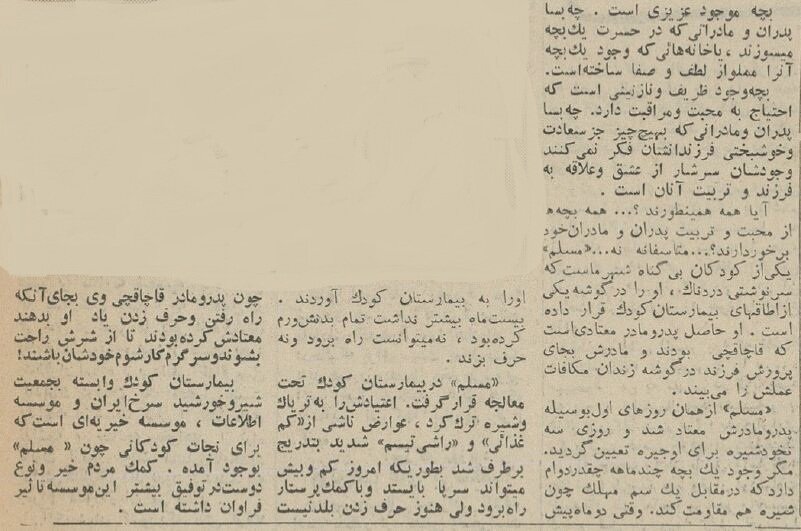 بچه موجود عزیزی است . چه‌بسا
پدران و مادرانی‌که در حسرت یك‌بچه
میسوزند ، یاخانه‌هائی‌که وجود یك‌بچه
آنرا مملواز لطف و صفا ساخته‌است.
بچه‌وجود ظریف ونازنینی است که
احتیاج به محبت ومراقبت دارد. چه‌بسا
پدران ومادرانی‌که بهیچ‌چیز جزسعادت
وخوشبختی فرزندانشان فکر نمی‌کنند
وجودشان سرشار از عشق وعلاقه به
فرزند و تربیت آنان است .
آیا همه همینطورند ؟... همه بچه‌ها
از محبت و تربیت پدران و مادران‌خود
برخوردارند؟...متاسفانه نه...«مسلم»
یکی‌از کودکان بی‌گناه شهرماست‌که
سرنوشتی دردناك ، او را درگوشه‌یکی
ازاطاقهای بیمارستان‌کودك قرار داده
است . او حاصل پدرومادر معتادی‌است
که قاچاقچی بودند و مادرش بجای
پرورش فرزند درگوشه زندان مکافات
عملش را می‌بیند .
«مسلم» ازهمان روزهای اول‌بوسیله
پدرومادرش معتاد شد و روزی سه
نخودشیره برای اوجیره تعیین‌گردید.
مگر وجود یك بچه چندماهه چقدردوام
داردکه درمقابل یك سم مهلك چون
شیره هم مقاومت‌کند. وقتی دوماه‌پیش
اورا به بیمارستان کودك آوردند .
بیست‌ماه بیشتر نداشت تمام بدنش‌ورم
کرده‌بود ، نه‌میتوانست راه برود ونه
حرف بزند .
«مسلم» دربیمارستان کودك تحت
معالجه قرارگرفت. اعتیادش‌را به‌تریاك
وشیره ترك‌کرد ، عوارض ناشی از«کم
غذائی» و «راشی‌تیسم» شدید بتدریج
برطرف شد بطوریکه امروز کم وبیش
میتواند سرپا بایستد وباکمك‌پرستار
راه‌برود ولی هنوز حرف زدن بلدنیست
چون پدرومادر قاچاقچی وی بجای‌آنکه
راه رفتن وحرف زدن یاد او بدهند
معتادش کرده‌بودند تا از شرش راحت
بشوندوسرگرم‌کارشوم‌خودشان‌باشند!
بیمارستان کودك وابسته بجمعیت
شیروخورشید سرخ‌ایران و موسسه
اطلاعات ، موسسه خیریه‌ای است‌که
برای نجات کودکانی چون « مسلم»
بوجود آمده . کمك مردم خیر ونوع
دوست‌درتوفیق بیشتر این‌موسسه‌تاثیر
فراوان داشته است .